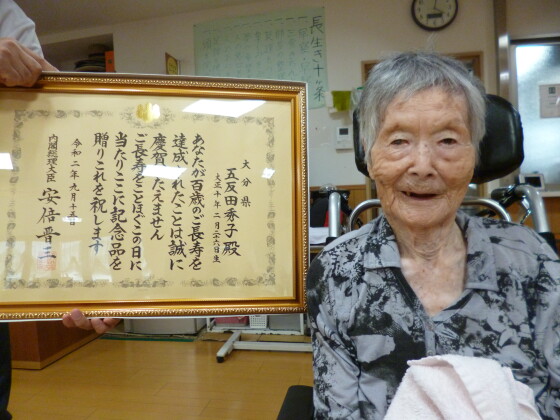 大分県
五反田秀子殿
大正十年二月二六日生
あなたが百歳のご長寿を
達成されたことは誠に
慶賀にたえません
ご長寿をことほぐこの日に
当たりここに記念品を
贈りこれを祝します
令和二年九月十五日
内閣総理大臣 安倍晋三
長生き十ヶ条